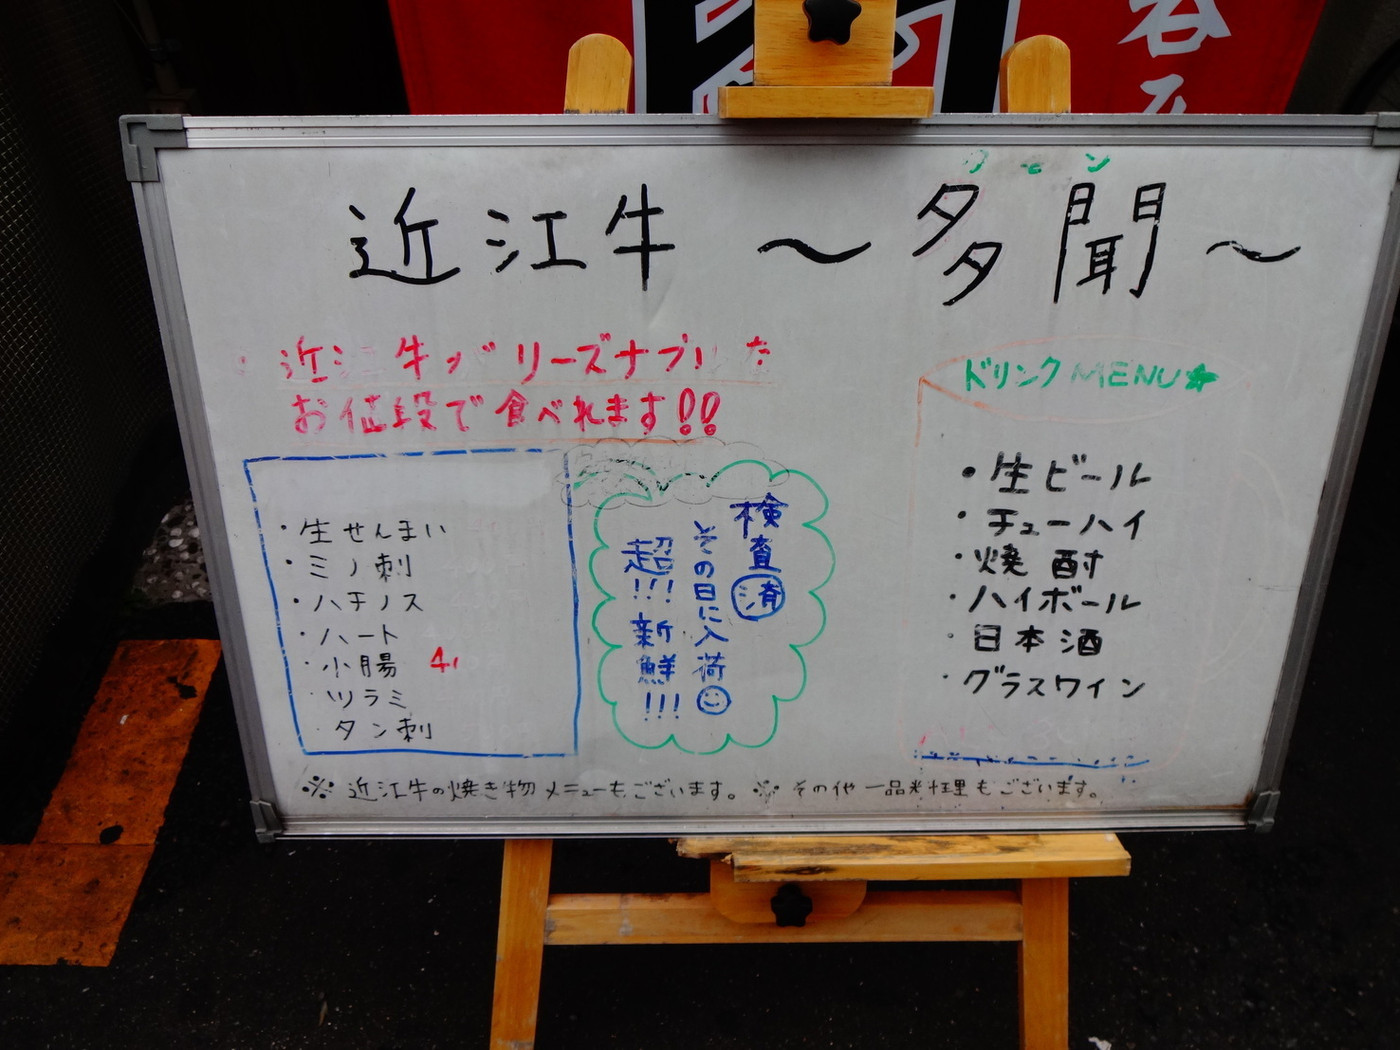 呑
タモン
近江牛 ～多聞～
近江牛がリーズナブルな
お値段で食べれます!!
・生せんまい
・ミノ刺
・ハチノス
・ハート
・小腸
・ツラミ
・タン刺
検査済
その日に入荷
超!!新鮮!!!
ドリンクMENU★
・生ビール
・チューハイ
・焼酎
・ハイボール
・日本酒
・グラスワイン
※近江牛の焼き物メニューもございます。※その他一品料理もございます。